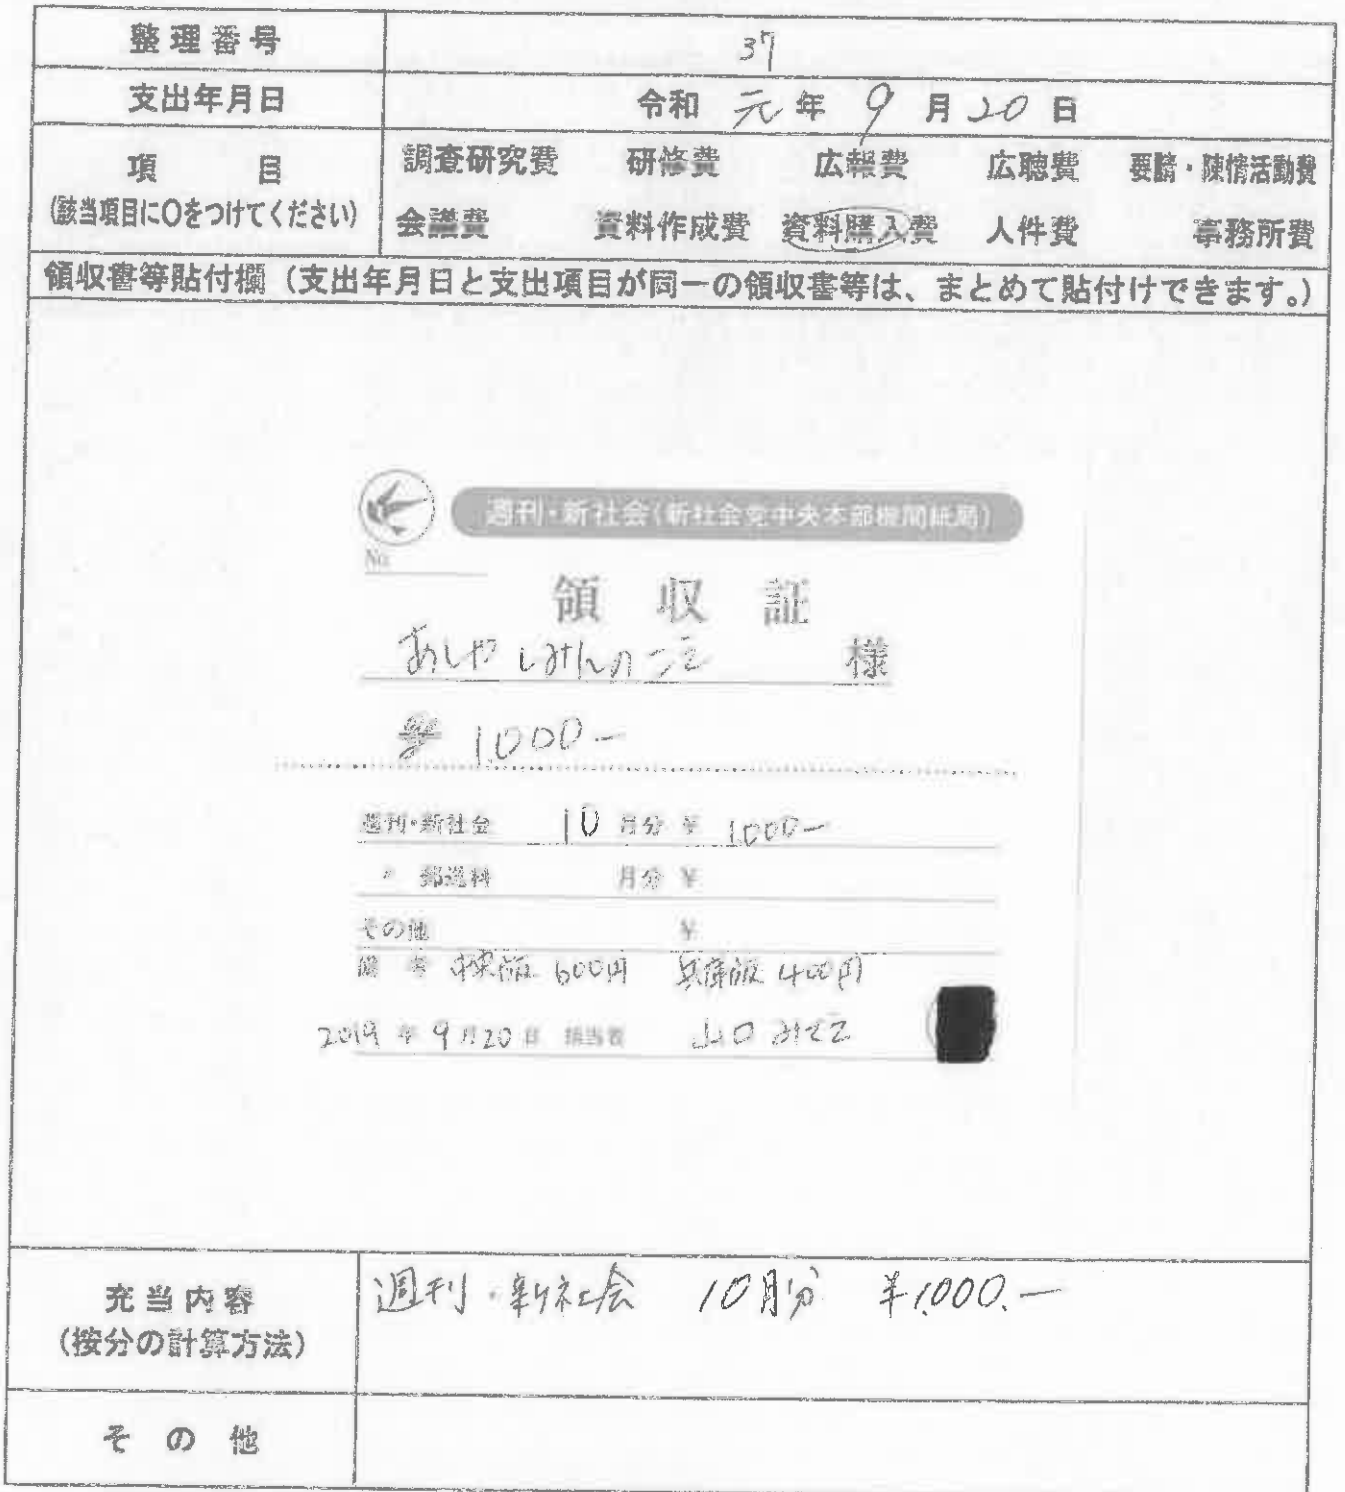 整理番号 37
支出年月日 令和 元 年 9 月 20 日
項 目 調査研究費 研修費 広報費 広聴費 要請・陳情活動費
(該当項目に○をつけてください) 会議費 資料作成費 資料購入費 人件費 事務所費
領収書等貼付欄（支出年月日と支出項目が同一の領収書等は、まとめて貼付けできます。）
週刊・新社会(新社会党中央本部機関紙局)
No.
領収証
あしや しみんのこえ 様
¥ 1,000-
週刊・新社会 10 月分 ¥ 1,000-
〃 郵送料 月分 ¥
その他 ¥
備考 中央版 600円 兵庫版 400円
2019 年 9 月 20 日 担当者 山口みさえ
充当内容 週刊・新社会 10月分 ¥1,000.-
(按分の計算方法)
その他